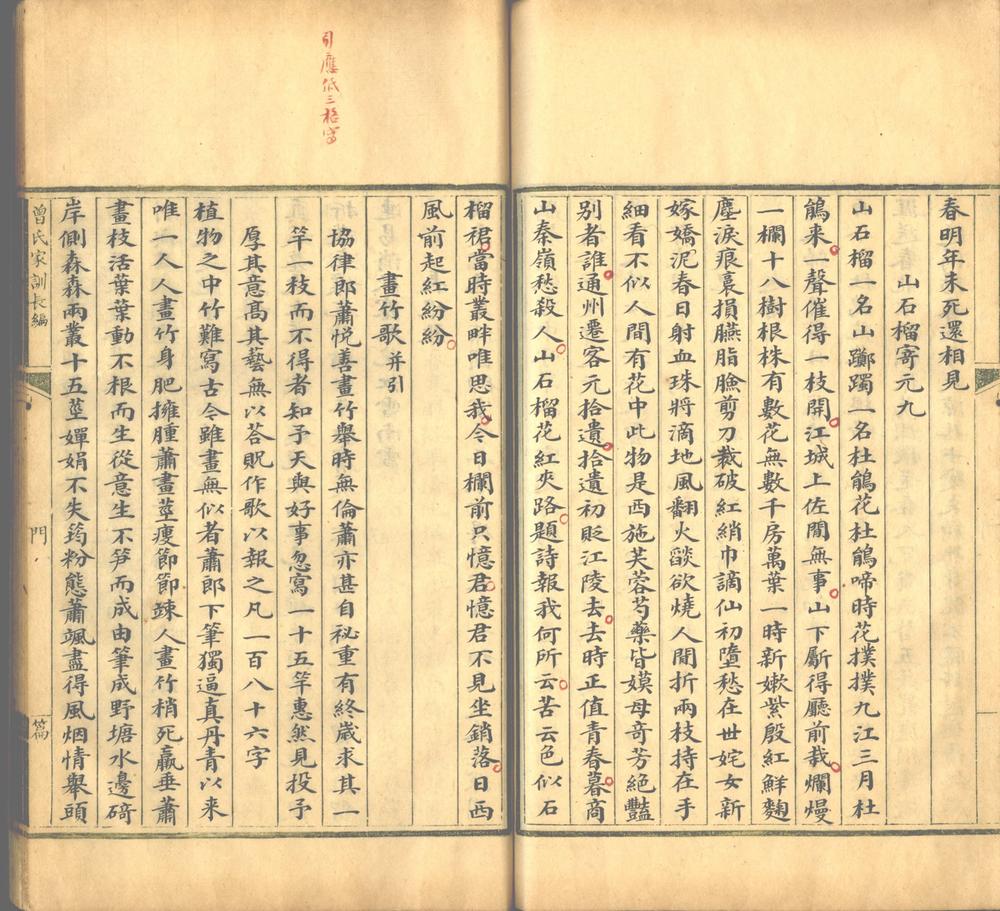 春明年未死還相見
山石榴寄元九
山石榴一名山躑躅一名杜鵑花杜鵑啼時花撲撲九江三月杜
鵑来一聲催得一枝開江城上佐閒無事山下斸得廳前栽爛熳
一欄十八樹根株有數花無數千房萬葉一時新嫰紫殷紅鮮麴
塵淚痕裛損臙脂臉剪刀裁破紅綃巾謫仙初墮愁在世姹女新
嫁嬌泥春日射血珠將滴地風翻火燄欲燒人閒折兩枝持在手
細看不似人間有花中此物是西施芙蓉芍藥皆嫫母奇芳絕豔
別者誰通州遷客元拾遺拾遺初貶江陵去去時正值青春暮商
山秦嶺愁殺人山石榴花紅夾路題詩報我何所云苦云色似石
榴裙當時叢畔唯思我今日欄前只憶君憶君不見坐銷落日西
風前起紅紛紛
畫竹歌并引
引應低三格寫
協律郎蕭悅善畫竹舉時無倫蕭亦甚自秘重有終歲求其一
竿一枝而不得者知予天與好事忽寫一十五竿惠然見投予
厚其意高其藝無以荅貺作歌以報之凡一百八十六字
植物之中竹難寫古今雖畫無似者蕭郎下筆獨逼真丹青以来
唯一人人畫竹身肥擁腫蕭畫莖瘦節節竦人畫竹梢死羸垂蕭
畫枝活葉葉動不根而生從意生不笋而成由筆成野塘水邊碕
岸側森森兩叢十五莖嬋娟不失筠粉態蕭颯盡得風烟情舉頭
曾氏家訓長編 門 篇